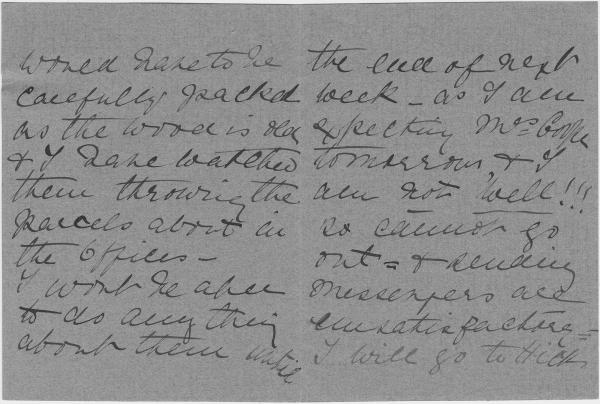 would have to be
carefully packed
as the wood is old
& I have watched
them throwing the
parcels about in
the Offices –
I wont be able
to do any thing
about them until
the end of next
week – as I am
expecting Mrs Cope
tomorrow, & I
am not well!!!
so cannot go
out = & sending
messengers are
unsatisfactory –
I will go to Hicks